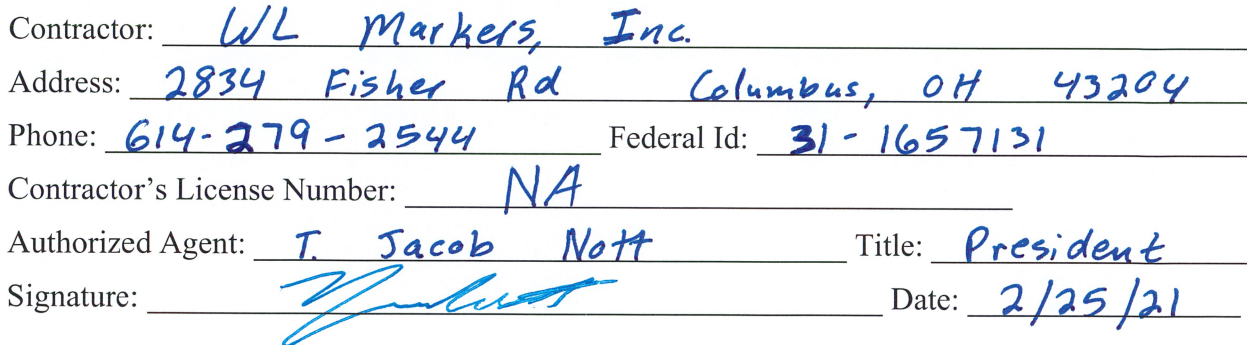 Contractor: WL Markers, Inc.
Address: 2834 Fisher Rd Columbus, OH 43204
Phone: 614-279-2544 Federal Id: 31-1657131
Contractor's License Number: NA
Authorized Agent: T. Jacob Nott Title: President
Signature: Date: 2/25/21